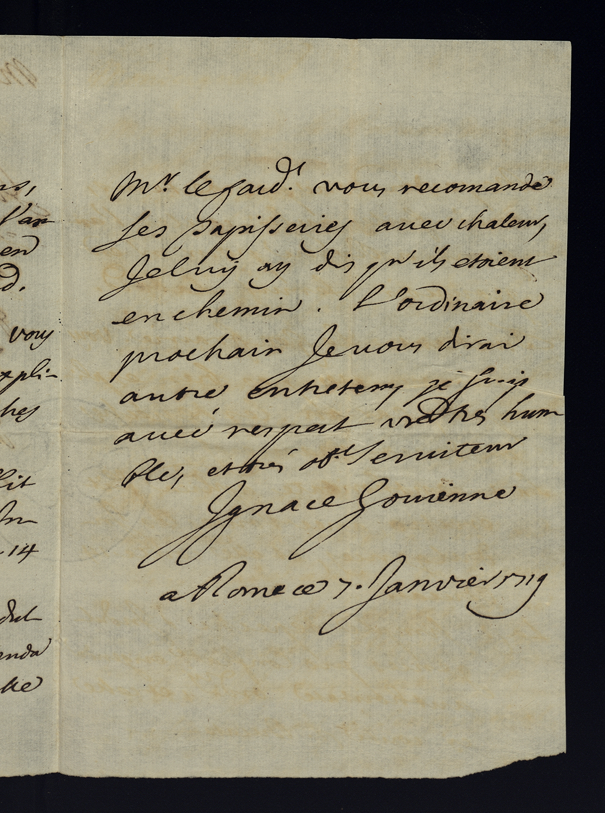 Mr. le Card.l vous recomande
ses tapisseries avec chaleur,
Je luy ay dis qu'ils etoient
en chemin. L'ordinaire
prochain Je vous dirai
autre entretems je suis
avec respect vre tres hum
ble, et tres ob.t Serviteur
Ignace Gouienne
a Rome ce 7. Janvier 1719
ns,
en
d.
vous
expli-
ches
14
enda